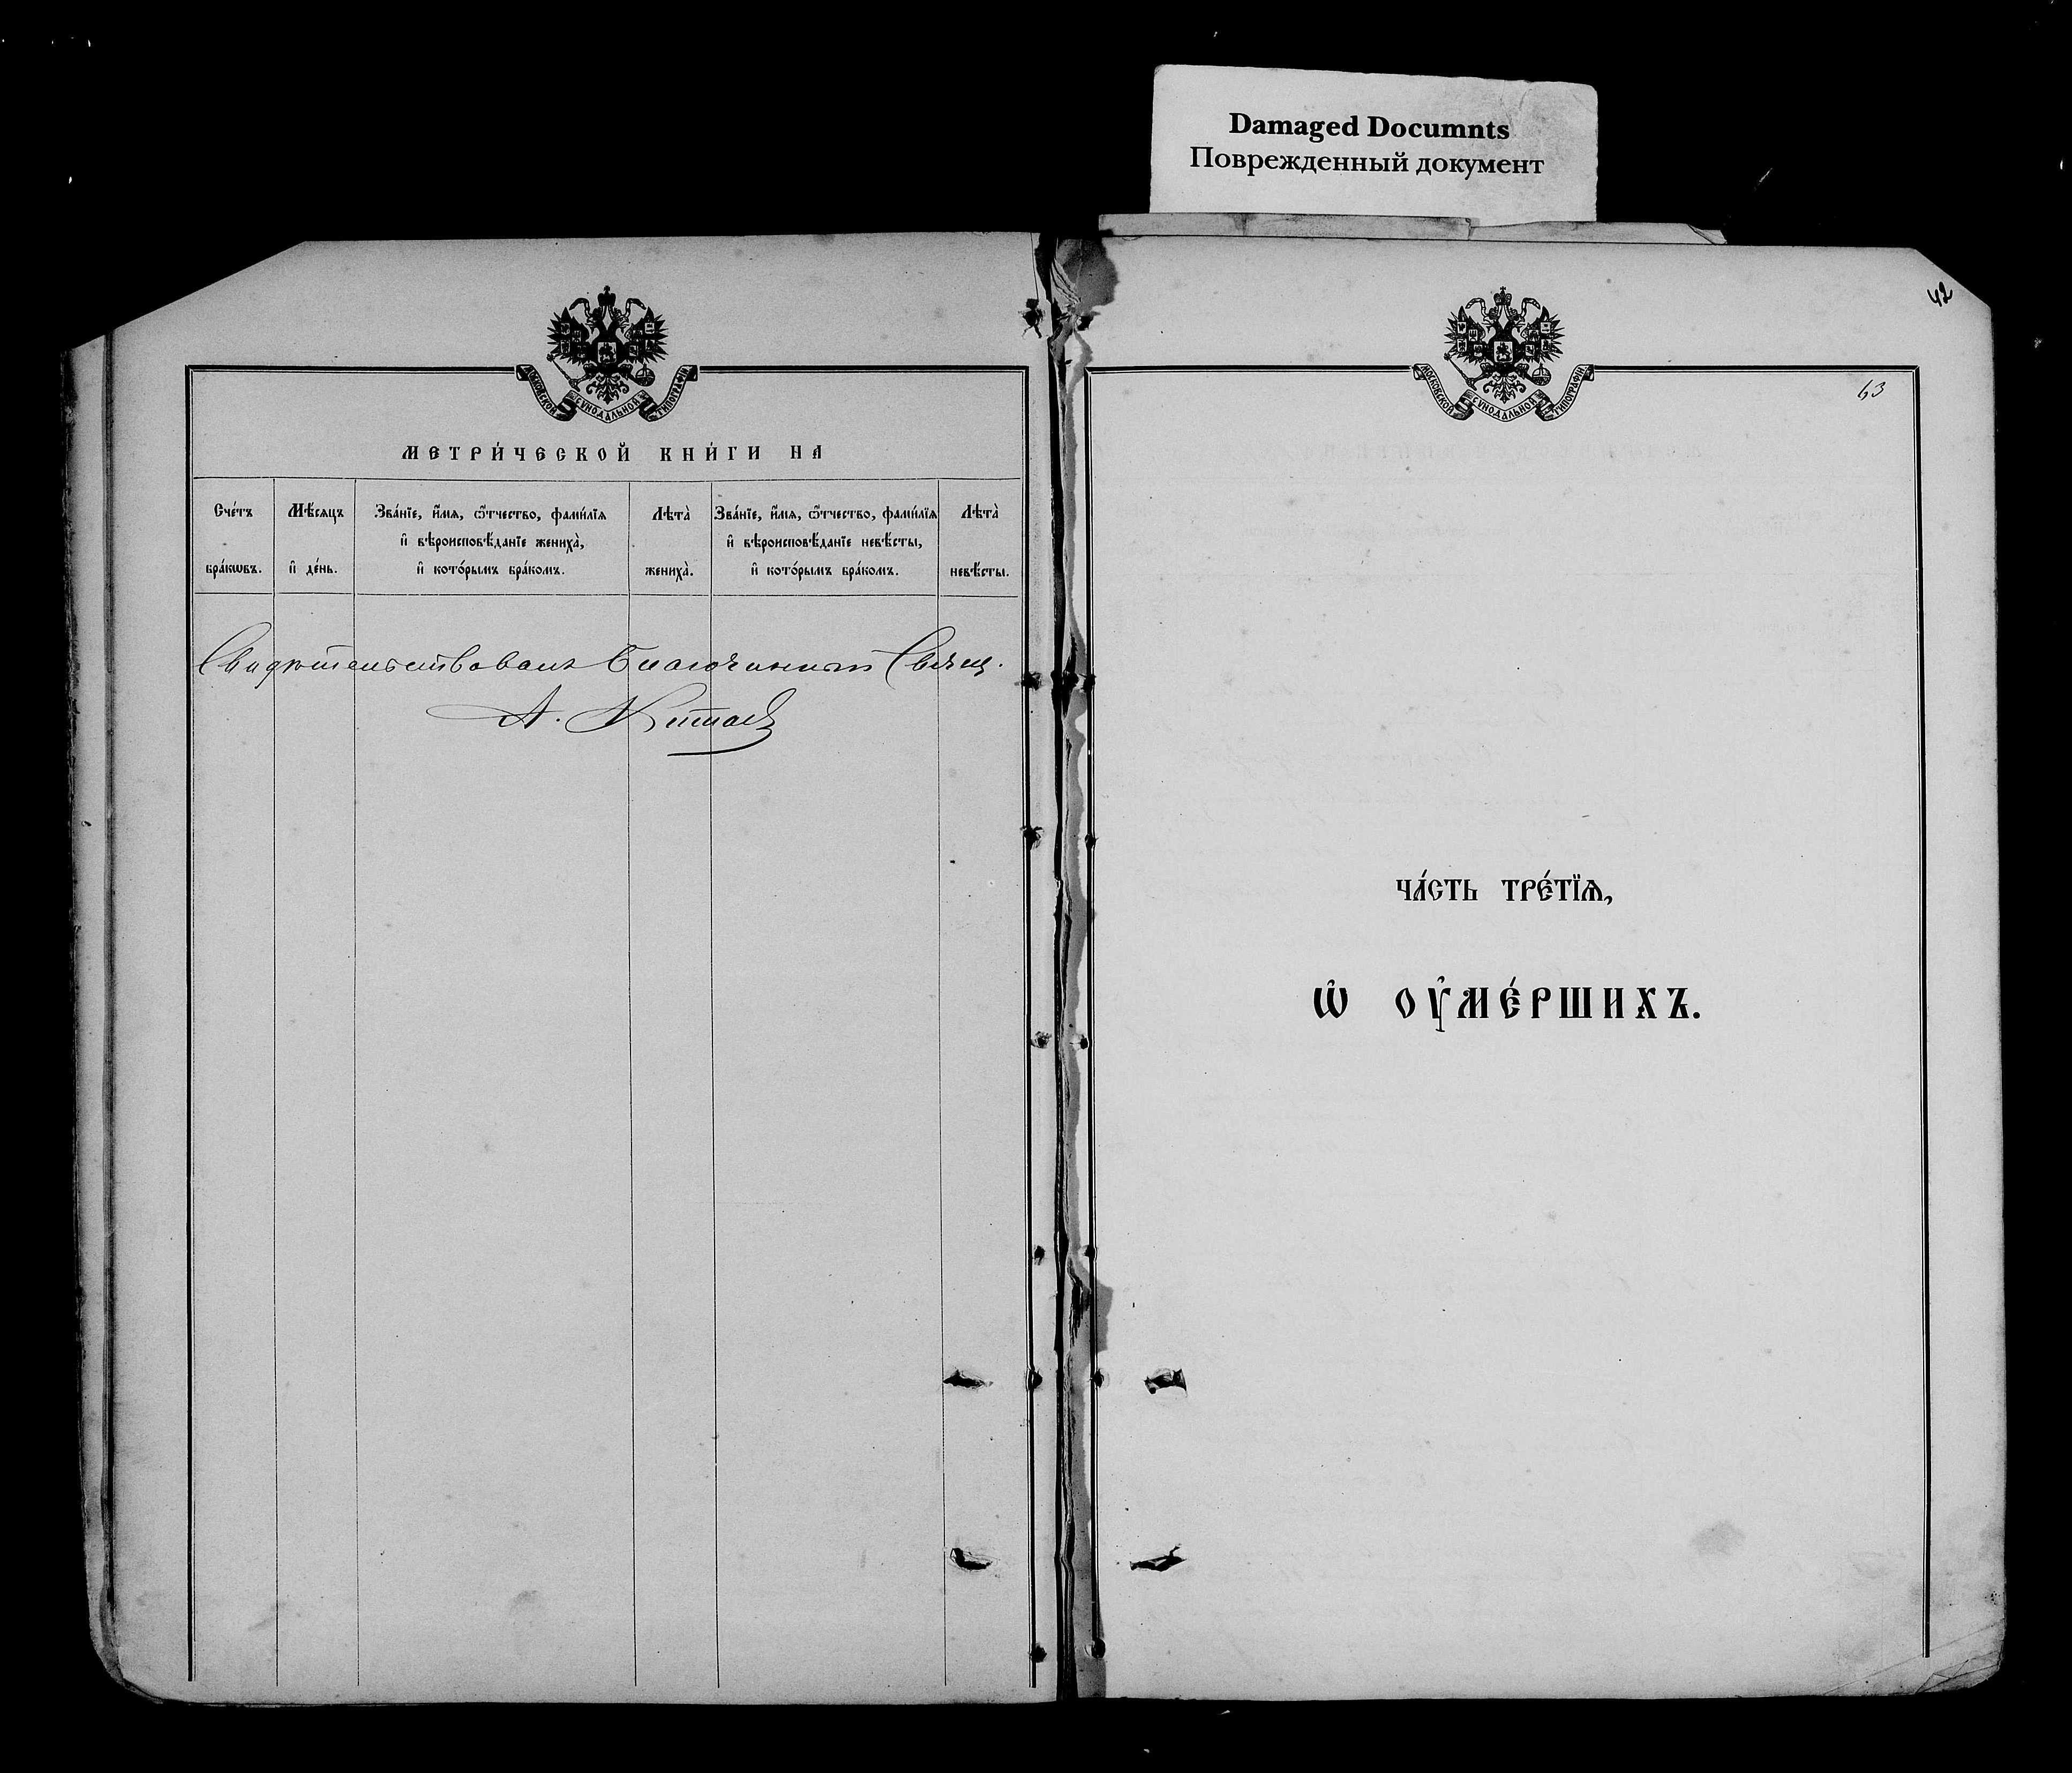 Damaged Documnts
Поврежденный документ
МОСКОВСКОЙ СѴНОДАЛЬНОЙ ТИПОГРАФІИ
МЕТРИ́ЧЕСКОЙ КНИ́ГИ НА
Сче́тъ бра́кѡвъ.
Мѣ́сяцъ и҆ де́нь.
Зва́нїе, и҆́мѧ, ѻ҆́тчество, фами́лїѧ
и҆ вѣроисповѣ́данїе жениха̀,
и҆ кото́рымъ бра́комъ.
Лѣта̀ жениха̀.
Зва́нїе, и҆́мѧ, ѻ҆́тчество, фами́лїѧ
и҆ вѣроисповѣ́данїе невѣ́сты,
и҆ кото́рымъ бра́комъ.
Лѣта̀ невѣ́сты.
Свидѣтельствовалъ Благочинный Свящ.
А. Китаев
42
МОСКОВСКОЙ СѴНОДАЛЬНОЙ ТИПОГРАФІИ
63
ЧА́СТЬ ТРЕ́ТЇѦ,
Ѡ҆ ОУ҆МЕ́РШИХЪ.